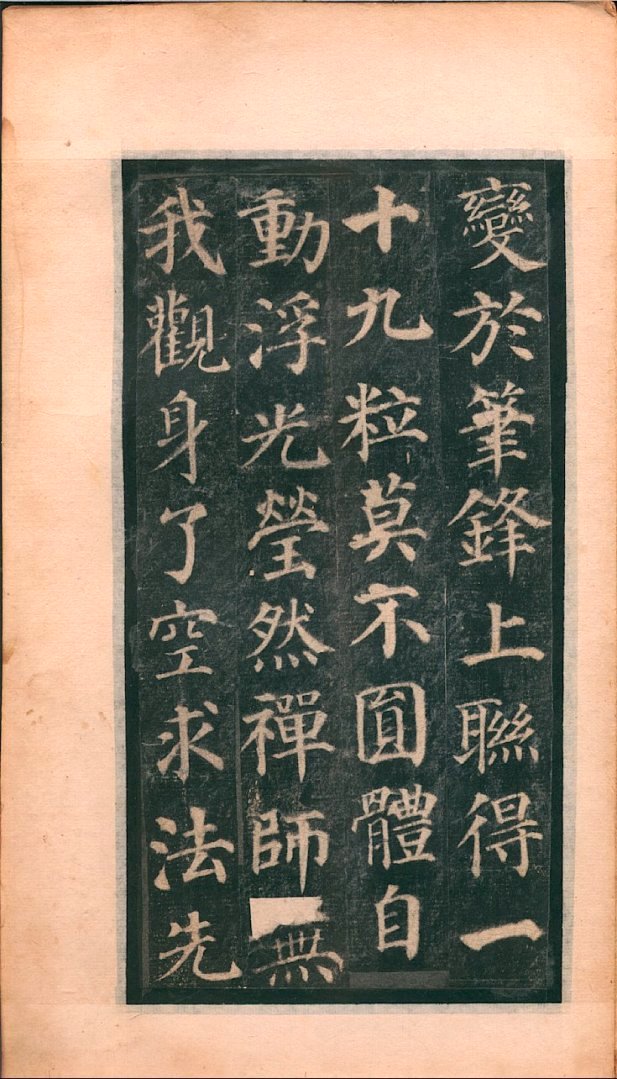 變於筆鋒上聯得一
十九粒莫不圎體自
動浮光瑩然禪師無
我觀身了空求法先